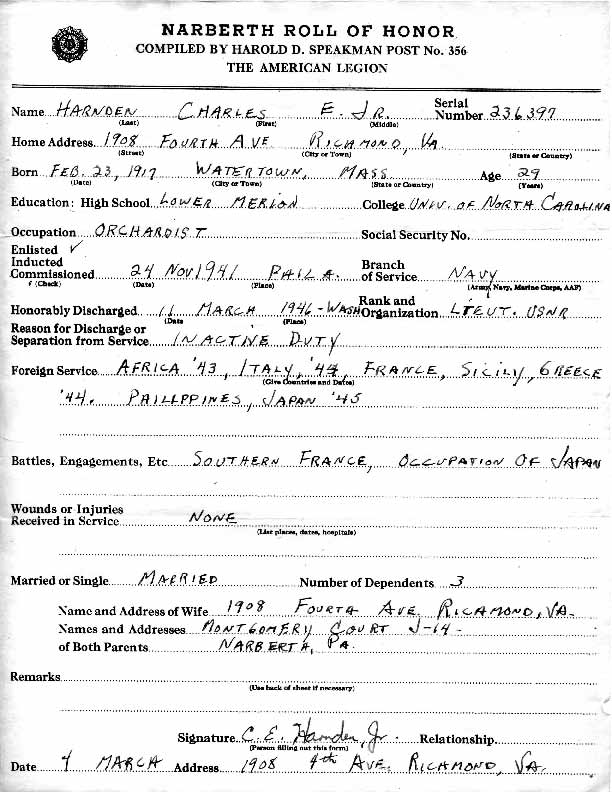 NARBERTH ROLL OF HONOR
COMPILED BY HAROLD D. SPEAKMAN POST No. 356
THE AMERICAN LEGION
Name HARNDEN CHARLES E. JR. Serial Number 236397
(Last) (First) (Middle)
Home Address 1908 FOURTH AVE RICHMOND, VA.
(Street) (City or Town) (State or Country)
Born FEB. 23, 1917 WATERTOWN, MASS Age 29
(Date) (City or Town) (State or Country) (Years)
Education: High School LOWER MERION College UNIV. OF NORTH CAROLINA
Occupation ORCHARDIST Social Security No.
Enlisted ✓
Inducted
Commissioned 24 NOV 1941 PHILA. Branch of Service NAVY
✓ (Check) (Date) (Place) (Army, Navy, Marine Corps, AAF)
Honorably Discharged 11 MARCH 1946 - WASH Rank and Organization LIEUT. USNR
(Date (Place)
Reason for Discharge or
Separation from Service INACTIVE DUTY
Foreign Service AFRICA '43, ITALY, '44, FRANCE, SICILY, GREECE
(Give Countries and Dates)
'44. PHILIPPINES, JAPAN '45
Battles, Engagements, Etc SOUTHERN FRANCE, OCCUPATION OF JAPAN
Wounds or Injuries
Received in Service NONE
(List places, dates, hospitals)
Married or Single MARRIED Number of Dependents 3
Name and Address of Wife 1908 FOURTH AVE RICHMOND, VA.
Names and Addresses MONTGOMERY COURT J-14-
of Both Parents NARBERTH, PA.
Remarks
(Use back of sheet if necessary)
Signature C. E. Harnden, Jr. Relationship
(Person filling out this form)
Date 4 MARCH Address 1908 4th AVE. RICHMOND, VA.